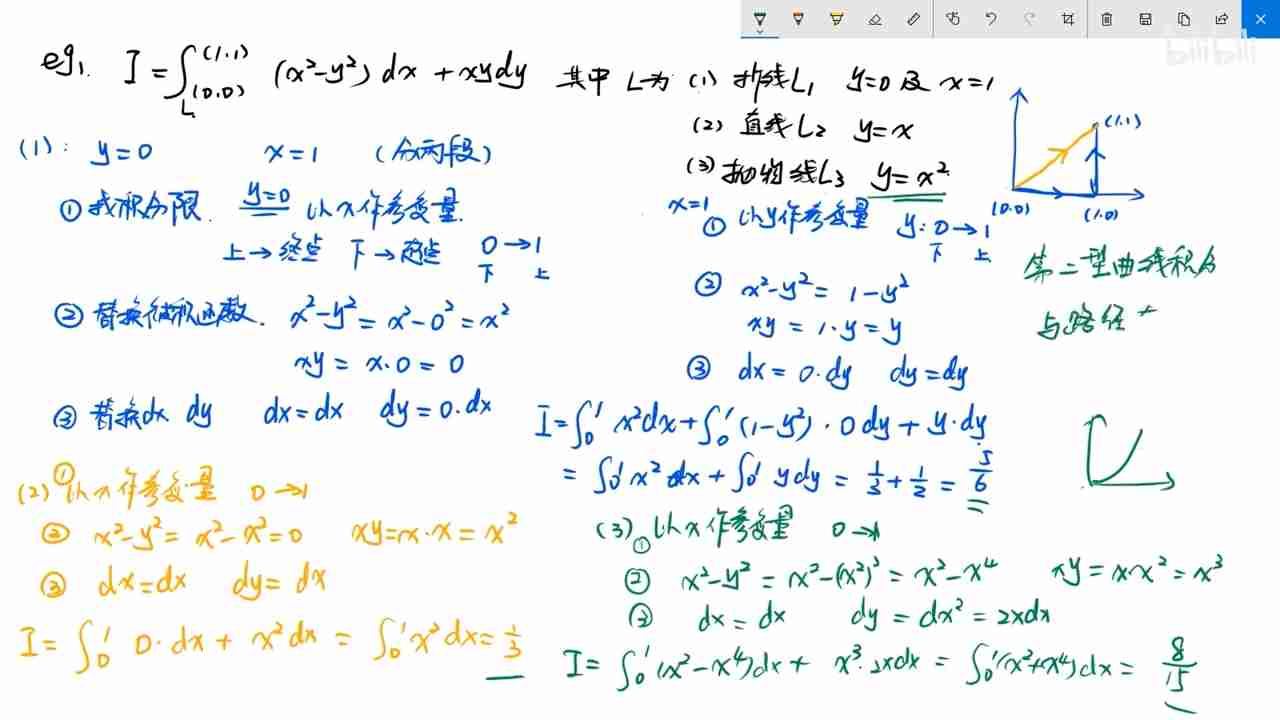 eg1. I = ∫_L(0.0)^(1.1) (x²-y²) dx + xydy 其中 L为 (1) 折线L₁ y=0 及 x=1
(2) 直线L₂ y=x
(3) 抛物线L₃ y=x²
(1): y=0 x=1 (分两段)
① 找积分限. y=0 以x作参变量.
上→终点 下→起点 0→1
下 上
② 替换被积函数. x²-y² = x²-0² = x²
xy = x·0 = 0
③ 替换dx dy dx=dx dy=0·dx
x=1
① 以y作参变量 y: 0→1
下 上
② x²-y² = 1-y²
xy = 1·y = y
③ dx = 0·dy dy=dy
I = ∫₀¹ x²dx + ∫₀¹ (1-y²)·0dy + y·dy
= ∫₀¹ x²dx + ∫₀¹ ydy = 1/3 + 1/2 = 5/6
(1.1)
(0.0)
(1.0)
第二型曲线积分
与路径
(2) ① 以x作参变量 0→1
② x²-y² = x²-x²=0 xy=x·x = x²
③ dx=dx dy= dx
I = ∫₀¹ 0·dx + x²dx = ∫₀¹ x²dx = 1/3
(3) ① 以x作参变量 0→1
② x²-y² = x²-(x²)² = x²-x⁴ xy = x·x² = x³
③ dx = dx dy = dx² = 2xdx
I = ∫₀¹ (x²-x⁴)dx + x³·2xdx = ∫₀¹ (x²+x⁴)dx = 8/15
bilibili